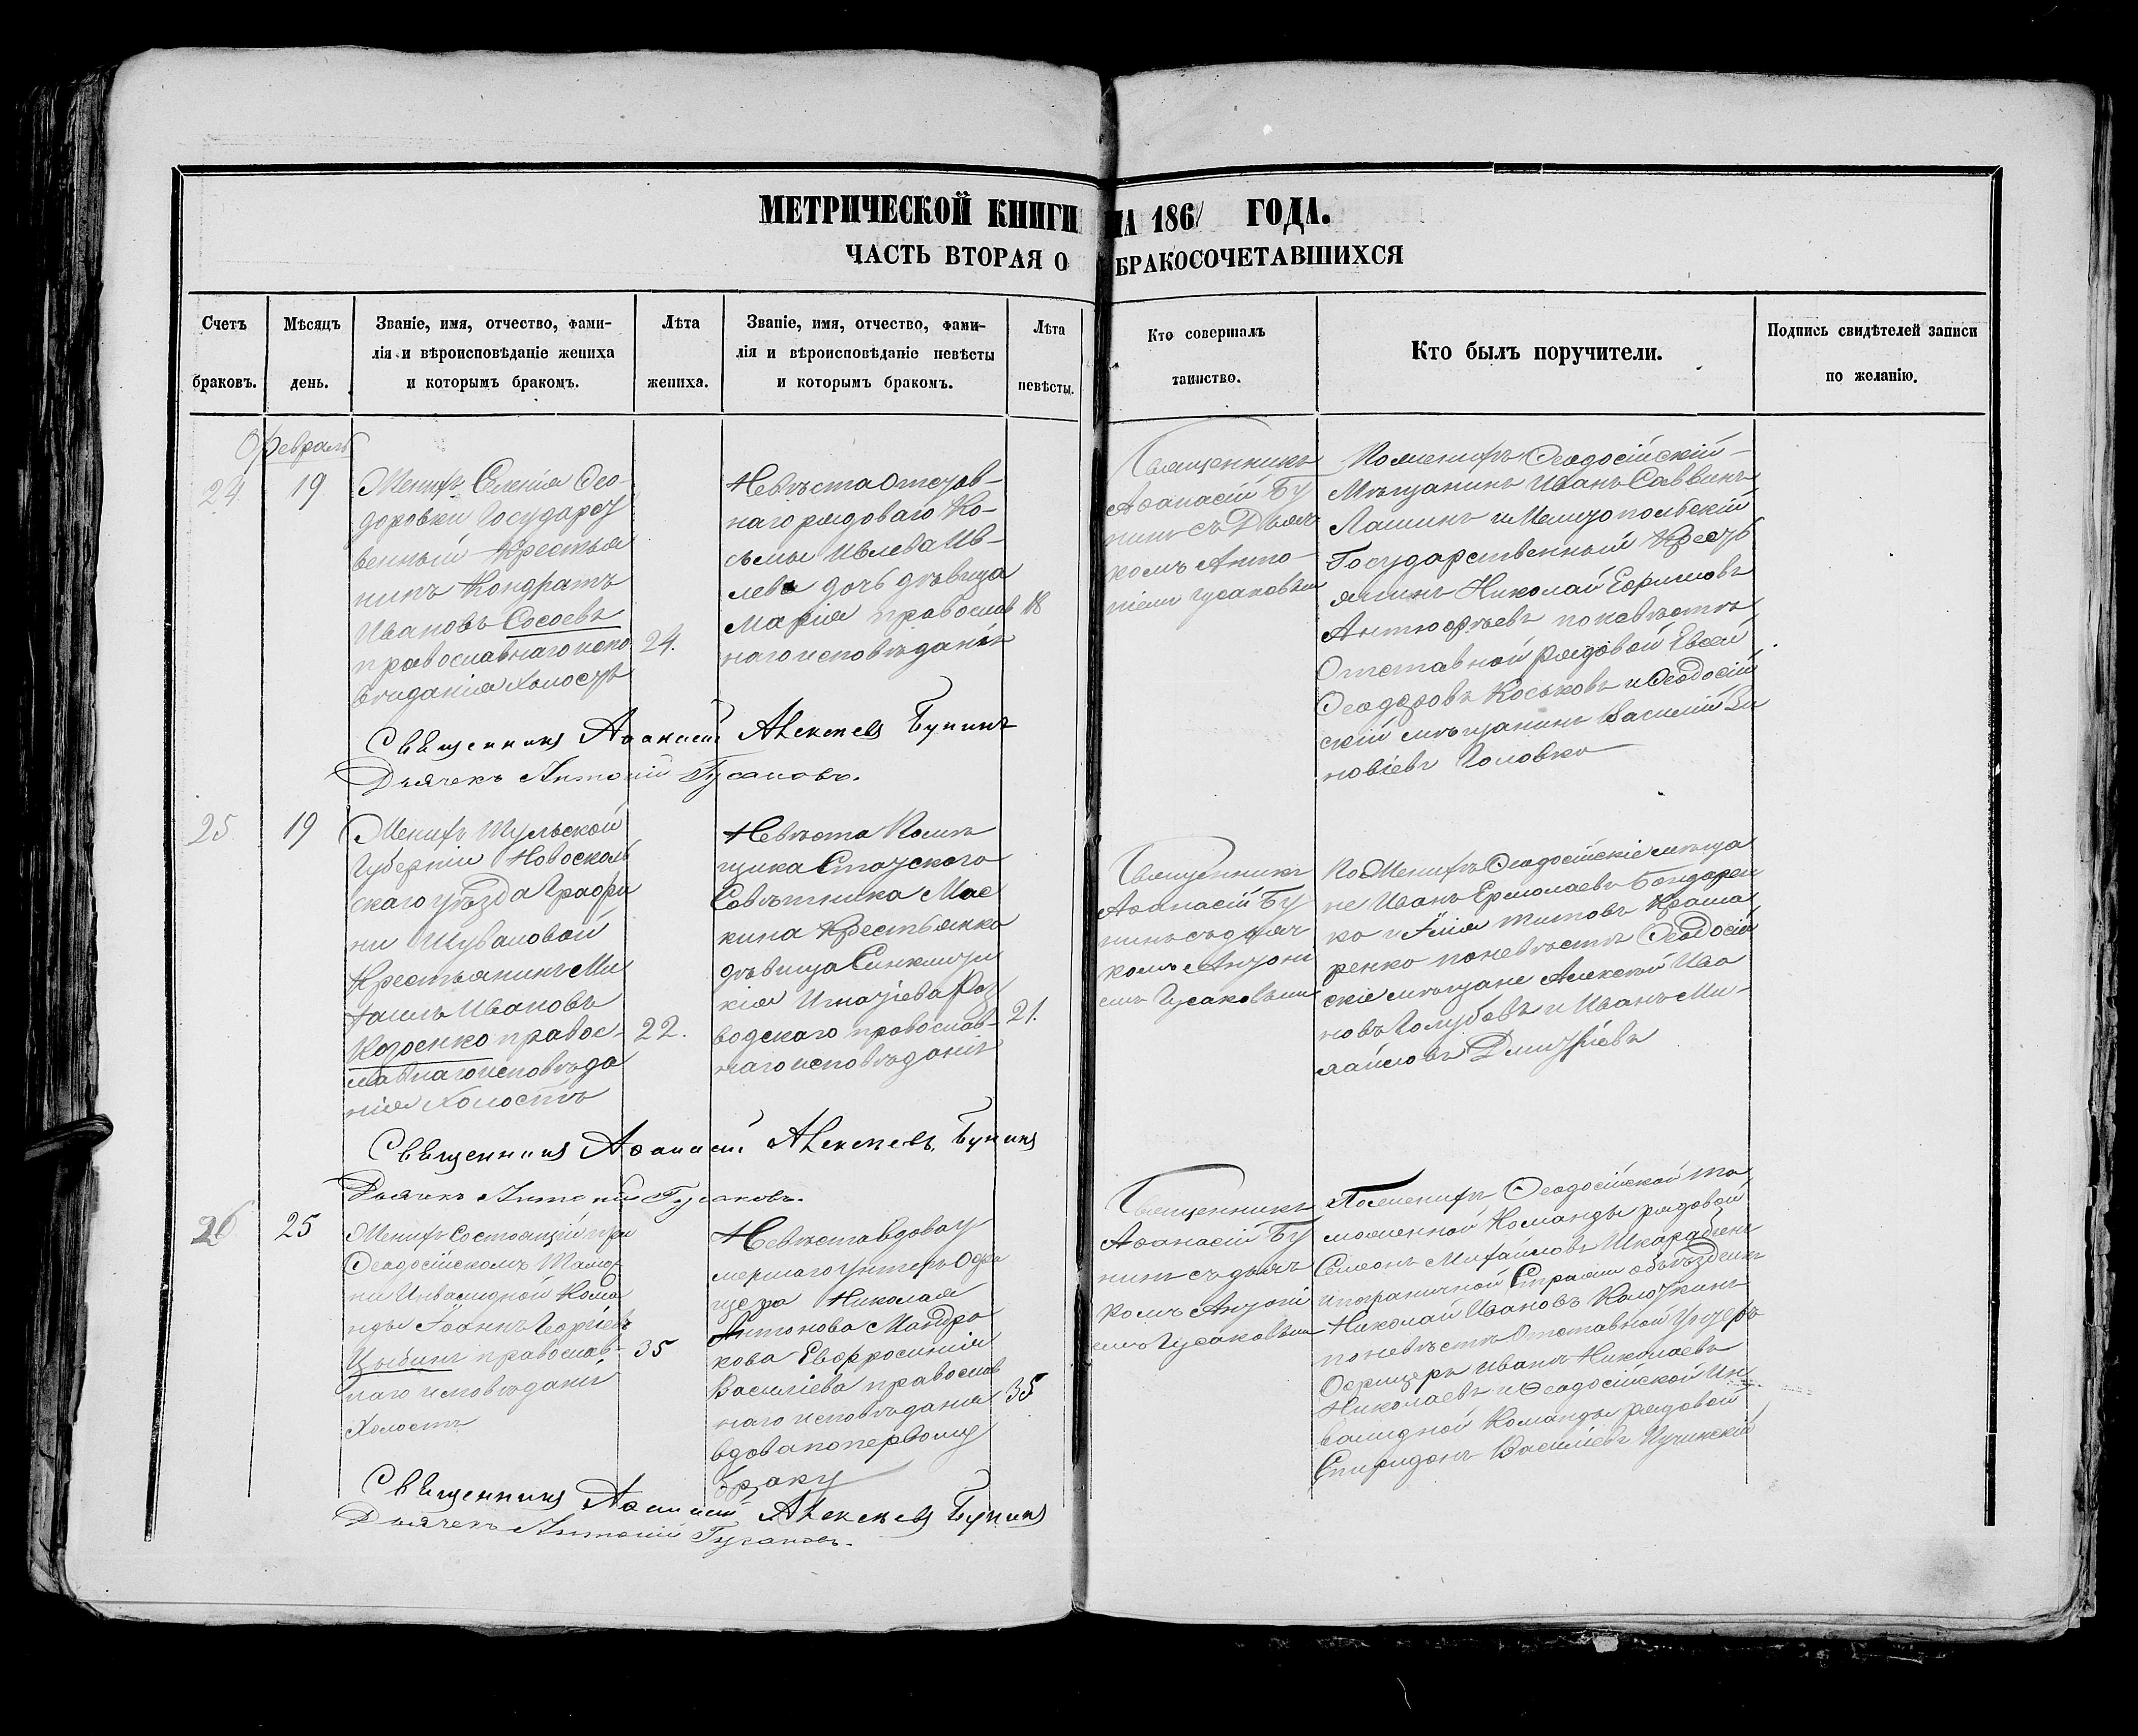 МЕТРИЧЕСКОЙ КНИГИ НА 1861 ГОДА.
ЧАСТЬ ВТОРАЯ О БРАКОСОЧЕТАВШИХСЯ
Счетъ
браковъ.
Мѣсяцъ
день.
Званіе, имя, отчество, фами-
лія и вѣроисповѣданіе жениха
и которымъ бракомъ.
Лѣта
жениха.
Званіе, имя, отчество, фами-
лія и вѣроисповѣданіе невѣсты
и которымъ бракомъ.
Лѣта
невѣсты.
Кто совершалъ
таинство.
Кто былъ поручители.
Подпись свидѣтелей записи
по желанію.
Февраль
24
19
Женихъ Селенія Ѳео-
доровки Государст
венный Крестья
нинъ Кондратъ
Ивановъ Сосоевъ
православнаго испо
вѣданія холостъ
24.
Невѣста Отстав-
наго рядоваго Ко-
сьмы Ивлева Ив-
лева дочь дѣвица
Марія православ
наго исповѣданія
18
Священникъ
Аѳанасій Бу
нинъ съ Дьяч
комъ Анто-
ніемъ Гусаковымъ
По женихѣ Ѳеодосійскій
Мѣщанинъ Иванъ Саввинъ
Лашинъ и Мелитопольскій
Государственный Крест
янинъ Николай Ефимовъ
Антюфѣевъ по невѣстѣ
Отставной рядовой Евсей
Ѳеодоровъ Коськовъ и Ѳеодосій
скій мѣщанинъ Василій Зи
новіевъ Головко
Священникъ Аѳанасій Алексѣевъ Бунинъ
Дьячекъ Антоній Гусаковъ.
25
19
Женихъ Тульской
Губерніи Новосиль
скаго уѣзда Графи
ни Шуваловой
Крестьянинъ Ми
хаилъ Ивановъ
Козоенко правос-
лавнаго исповѣда
нія Холостъ
22.
Невѣста Помѣ
щика Статскаго
Совѣтника Мас
кина Крестьянка
дѣвица Синклити
кія Игнатіева Раз
водскаго православ-
наго исповѣданія
21.
Священникъ
Аѳанасій Бу
нинъ съ дьяч
комъ Антоні
емъ Гусаковымъ
По Женихѣ Ѳеодосійскіе мѣща
не Иванъ Ермолаевъ Бондарен
ко и Илія Титовъ Крама
ренко по невѣстѣ Ѳеодосій
скіе мѣщане Алексѣй Ива
новъ Голубовъ и Иванъ Ми-
хайловъ Дмитріевъ
Священникъ Аѳанасій Алексѣевъ Бунинъ
Дьячекъ Антоній Гусаковъ.
26
25
Женихъ Состоящій при
Ѳеодосійскомъ Тамож
ни Инвалидной Кома
нды Іоаннъ Георгіевъ
Цыбинъ православ-
наго исповѣданія
Холостъ
35
Невѣста вдова у
мершаго Унтеръ Офи
цера Николая
Антонова Мандра
кова Евфросинія
Василіева православ
наго исповѣданія
вдова по первому
браку
35
Священникъ
Аѳанасій Бу
нинъ съ дьяч
комъ Антоні
емъ Гусаковымъ
По женихѣ Ѳеодосійской та
моженной Команды рядовой
Симеонъ Михайловъ Шкарабѣевъ
и пограничной Стражи объѣздчикъ
Николай Ивановъ Калуткинъ
по невѣстѣ Отставной Унтеръ
Офицеръ Иванъ Николаевъ
Николаевъ и Ѳеодосійской Ин
валидной Команды рядовой
Спиридонъ Василіевъ Пучинскій
Священникъ Аѳанасій Алексѣевъ Бунинъ
Дьячекъ Антоній Гусаковъ.